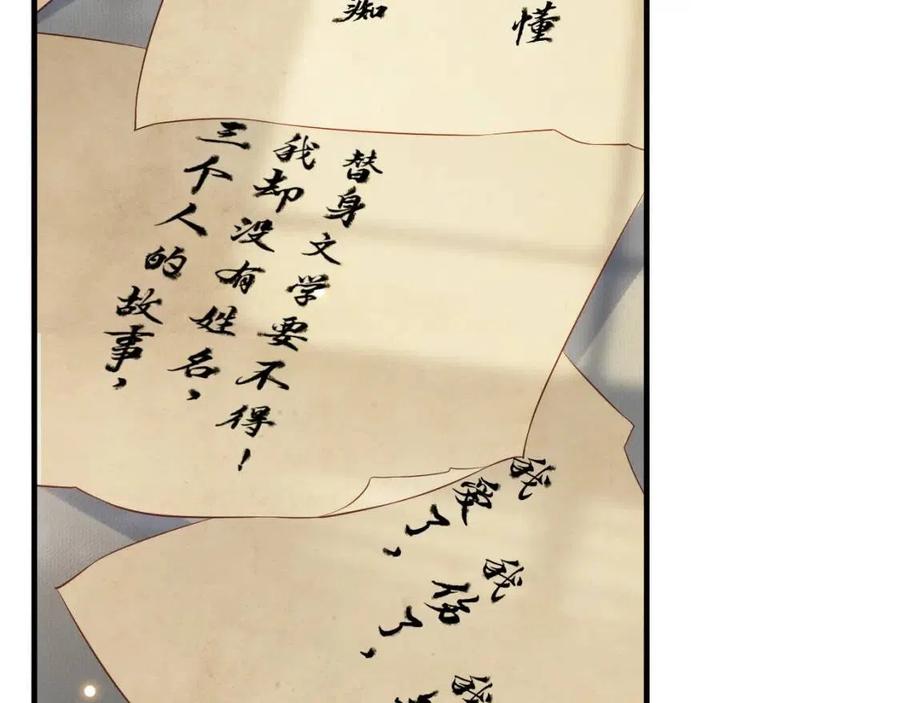 痴
懂
三个人的故事，
我却没有姓名，
替身文学要不得！
我爱了，
我伤了，
我